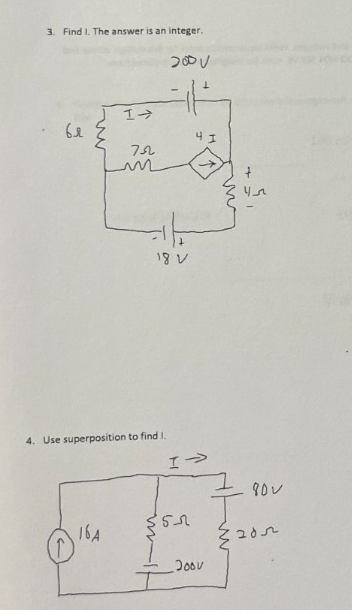 3. Find I. The answer is an integer.
200 V
- +
I →
6Ω
7Ω
4 I
+
4Ω
-
- +
18 V
4. Use superposition to find I.
I →
80V
16A
5Ω
20Ω
200V